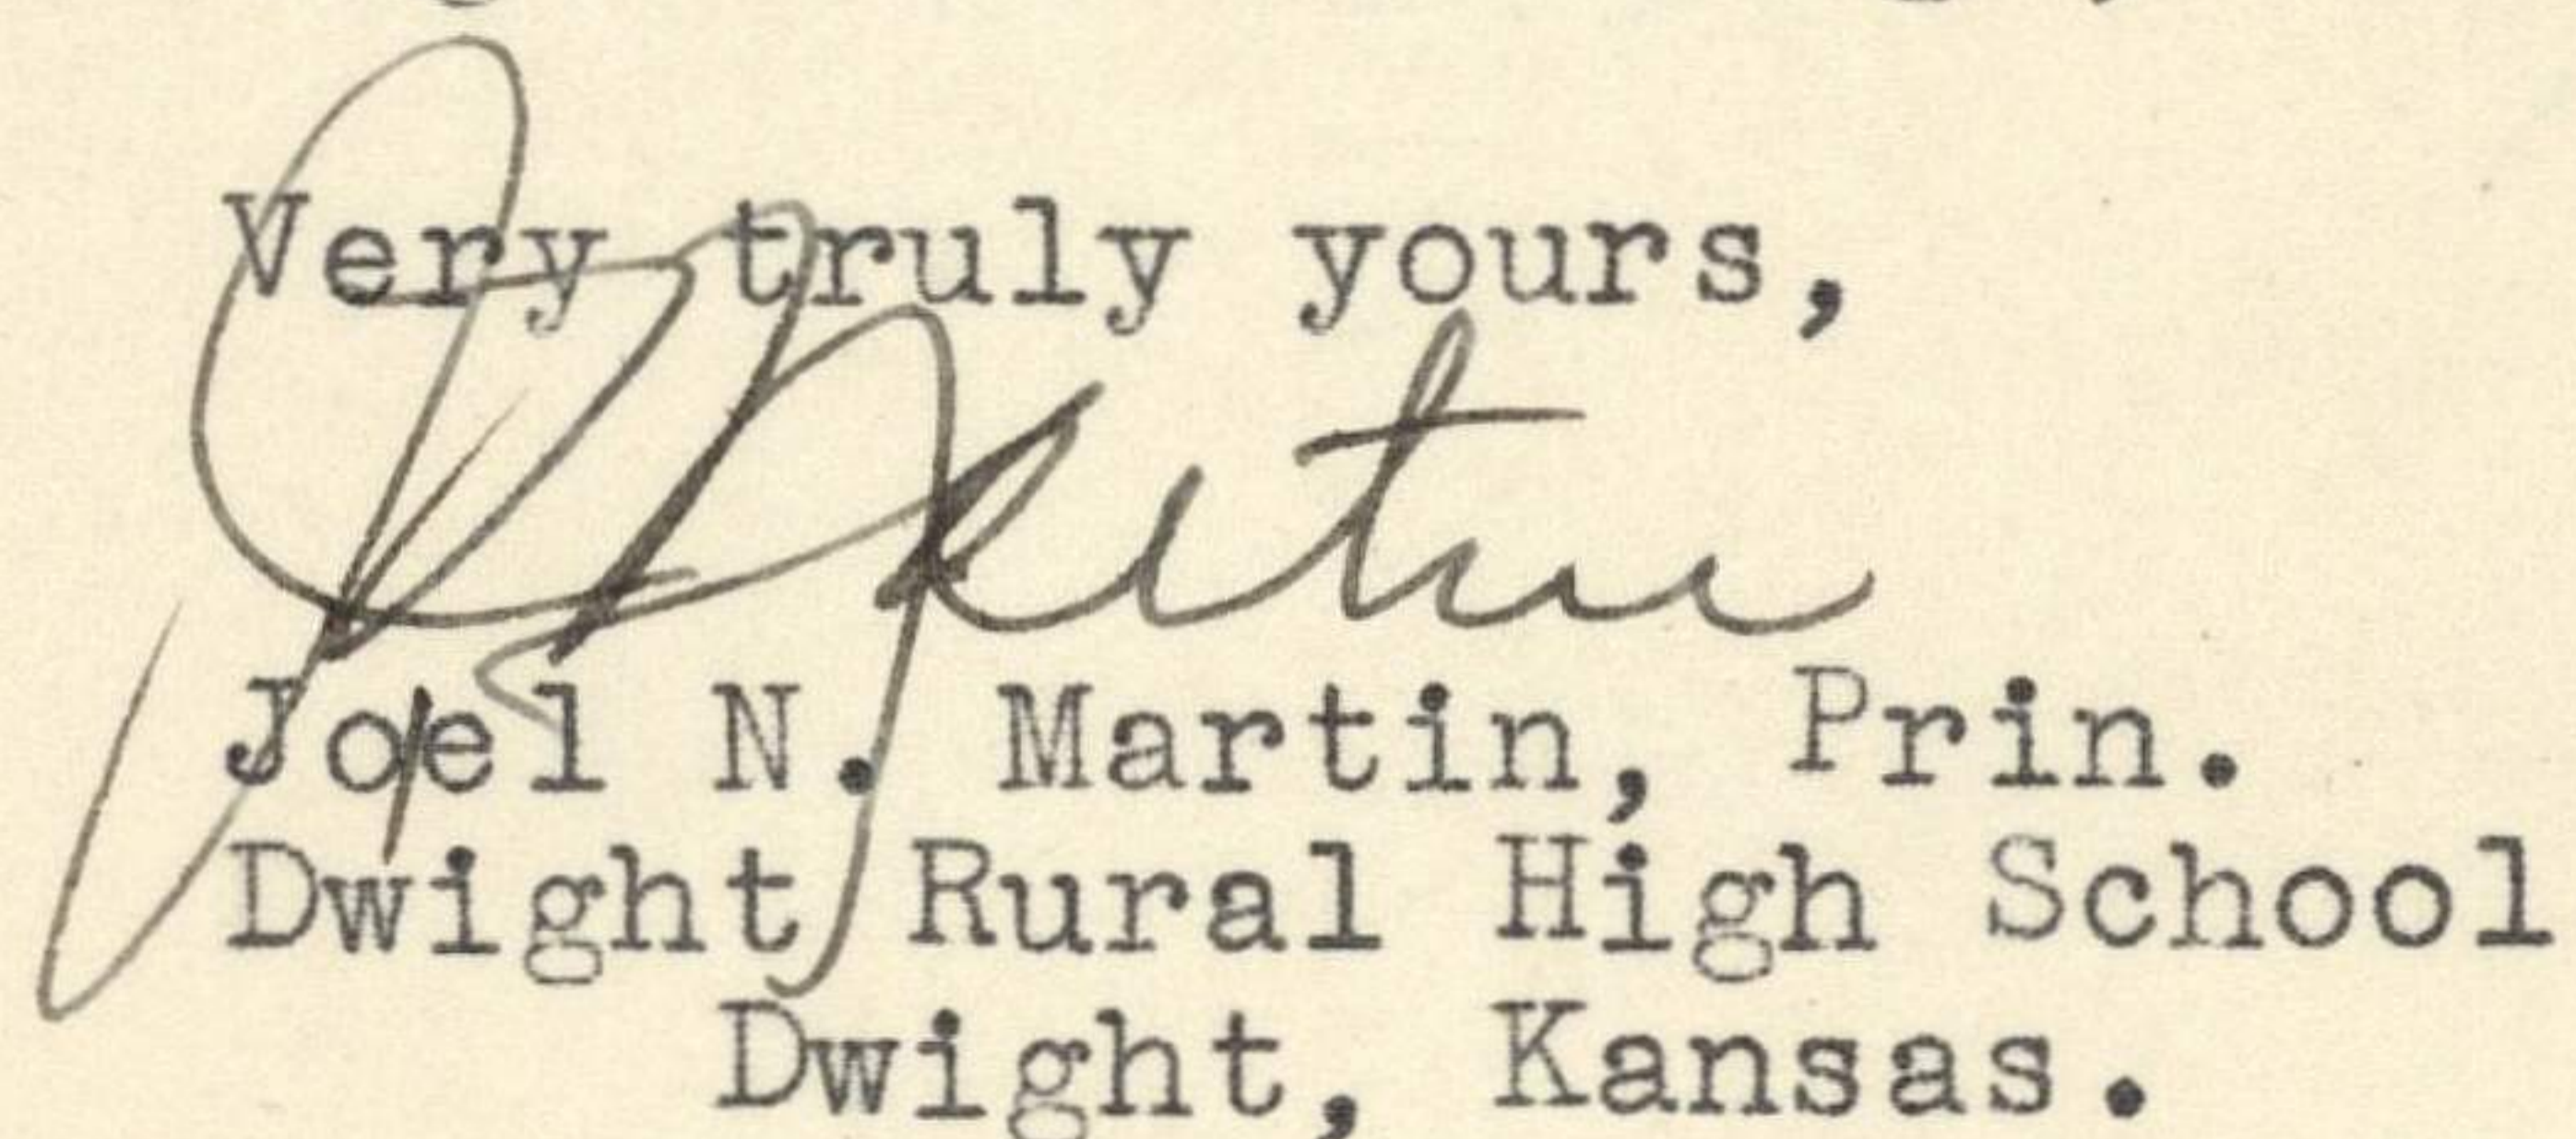 Very truly yours,
Joel N. Martin, Prin.
Dwight Rural High School
Dwight, Kansas.